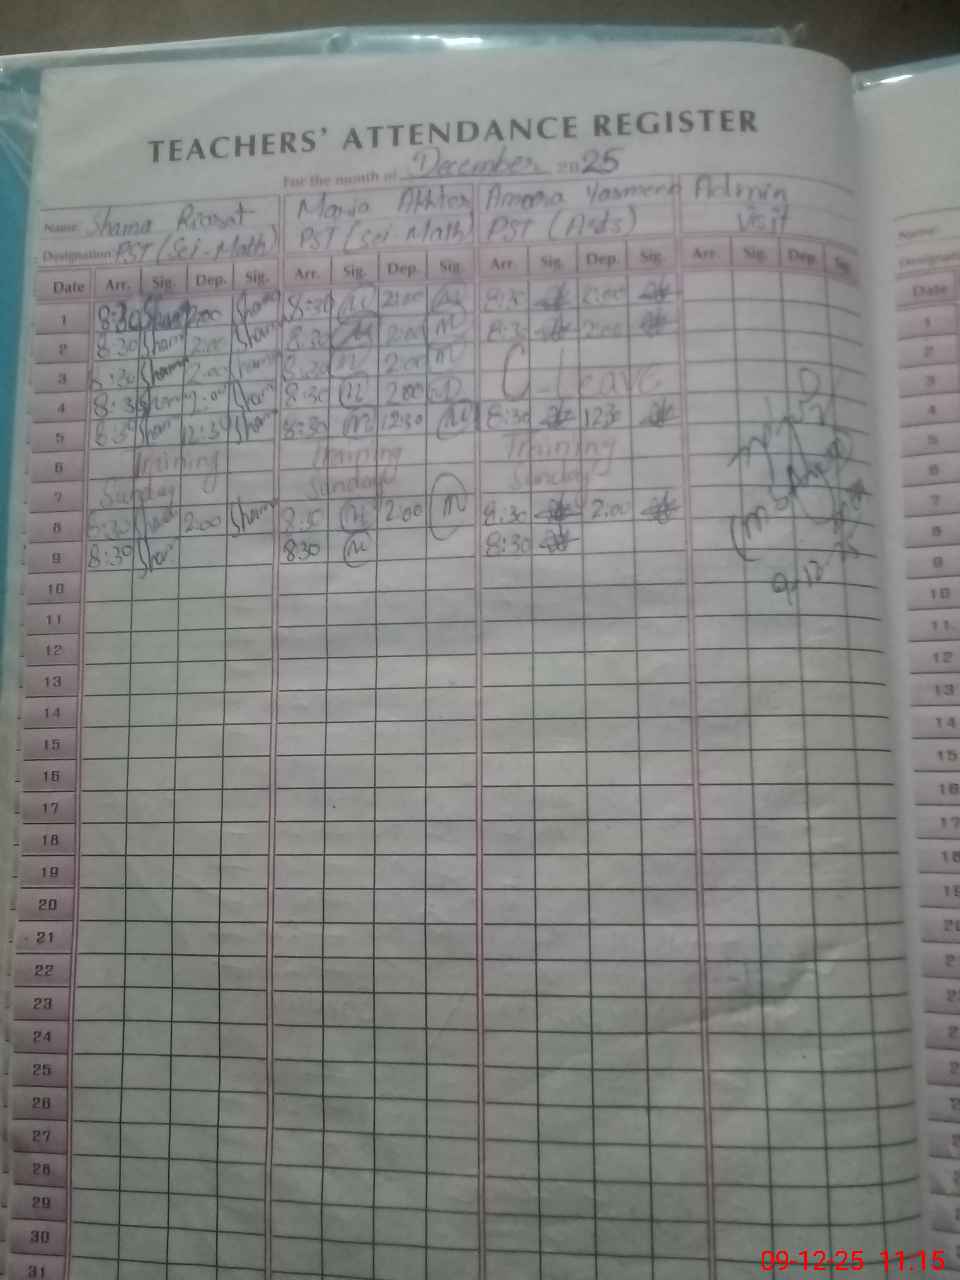 TEACHERS' ATTENDANCE REGISTER
For the month of December 2025
Name: Shama Riasat Maria Akhter Amama Yasmeen Admin
Designation: PST (Sci-Math) PST (Sci-Math) PST (Arts) Visit
Date Arr. Sig. Dep. Sig. Arr. Sig. Dep. Sig. Arr. Sig. Dep. Sig. Arr. Sig. Dep. Sig.
1 8:30 Sham 2:00 Sham 8:30 M 2:00 M 8:30 2:00
2 8:30 Sham 2:00 Sham 8:30 M 2:00 M 8:30 2:00
3 8:30 Sham 2:00 Sham 8:30 M 2:00 M C-Leave
4 8:30 Sham 2:00 Sham 8:30 M 2:00 M
5 8:30 Sham 12:30 Sham 8:30 M 12:30 M 8:30 1230
6 Training Training Training
7 Sunday Sunday Sunday
8 8:30 Sham 2:00 Sham 8:30 M 2:00 M 8:30 2:00
9 8:30 Sham 830 M 8:30
9-12-25
10
11
12
13
14
15
16
17
18
19
20
21
22
23
24
25
26
27
28
29
30
31
Name:
Date
1
2
3
4
5
6
7
8
9
10
11
12
13
14
15
16
17
18
09-12-25 11:15